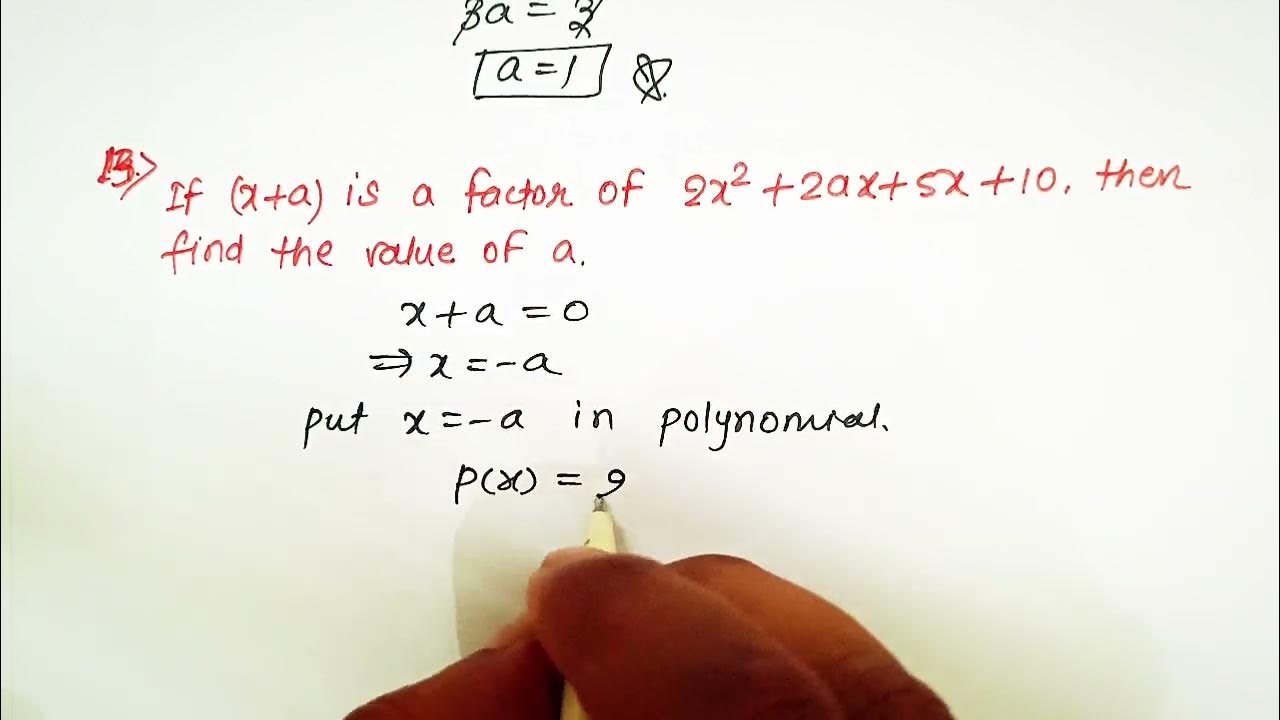 3a = 3
a = 1
13.> If (x+a) is a factor of 2x² + 2ax + 5x + 10, then
find the value of a.
x + a = 0
⇒ x = -a
put x = -a in polynomial.
p(x) =